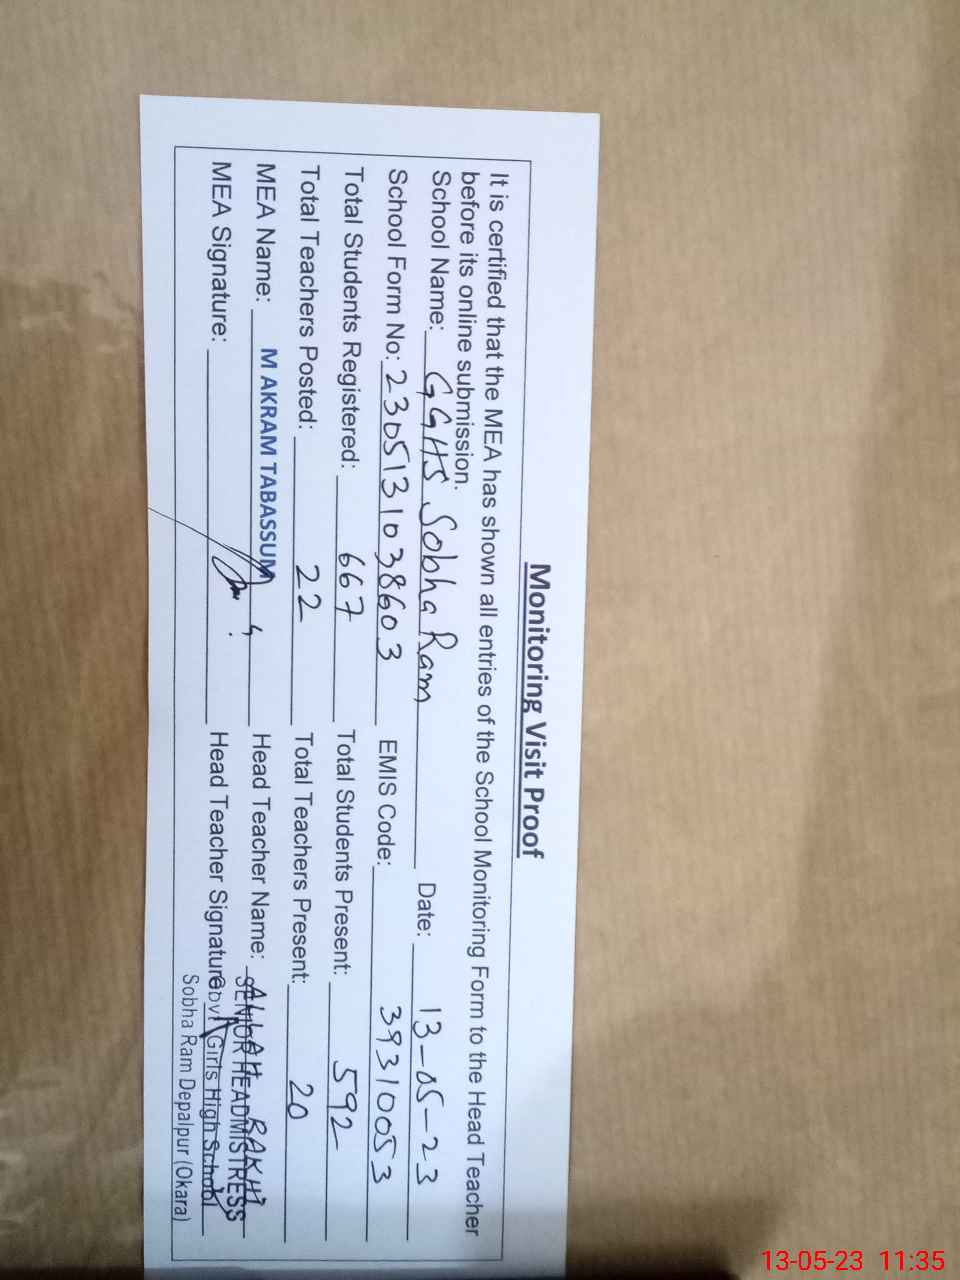 Monitoring Visit Proof
It is certified that the MEA has shown all entries of the School Monitoring Form to the Head Teacher
before its online submission.
School Name: GGHS Sobha Ram Date: 13-05-23
School Form No: 2305131038603 EMIS Code: 39310053
Total Students Registered: 667 Total Students Present: 592
Total Teachers Posted: 22 Total Teachers Present: 20
MEA Name: M AKRAM TABASSUM Head Teacher Name:
SENIOR HEADMISTRESS
MEA Signature: Head Teacher Signature: Govt Girls High School
Sobha Ram Depalpur (Okara)
13-05-23 11:35